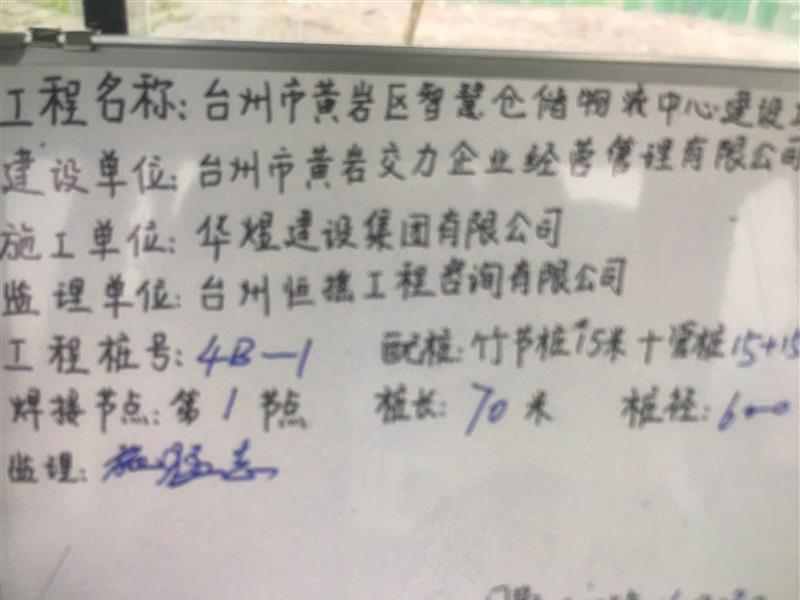 工程名称:台州市黄岩区智慧仓储物流中心建设工
建设单位:台州市黄岩交力企业经营管理有限公司
施工单位:华煜建设集团有限公司
监理单位:台州恒摇工程咨询有限公司
工程桩号:4B-1 配桩:竹节桩15米+管桩15+15
焊接节点:第1节点 桩长:70米 桩径:600
监理: